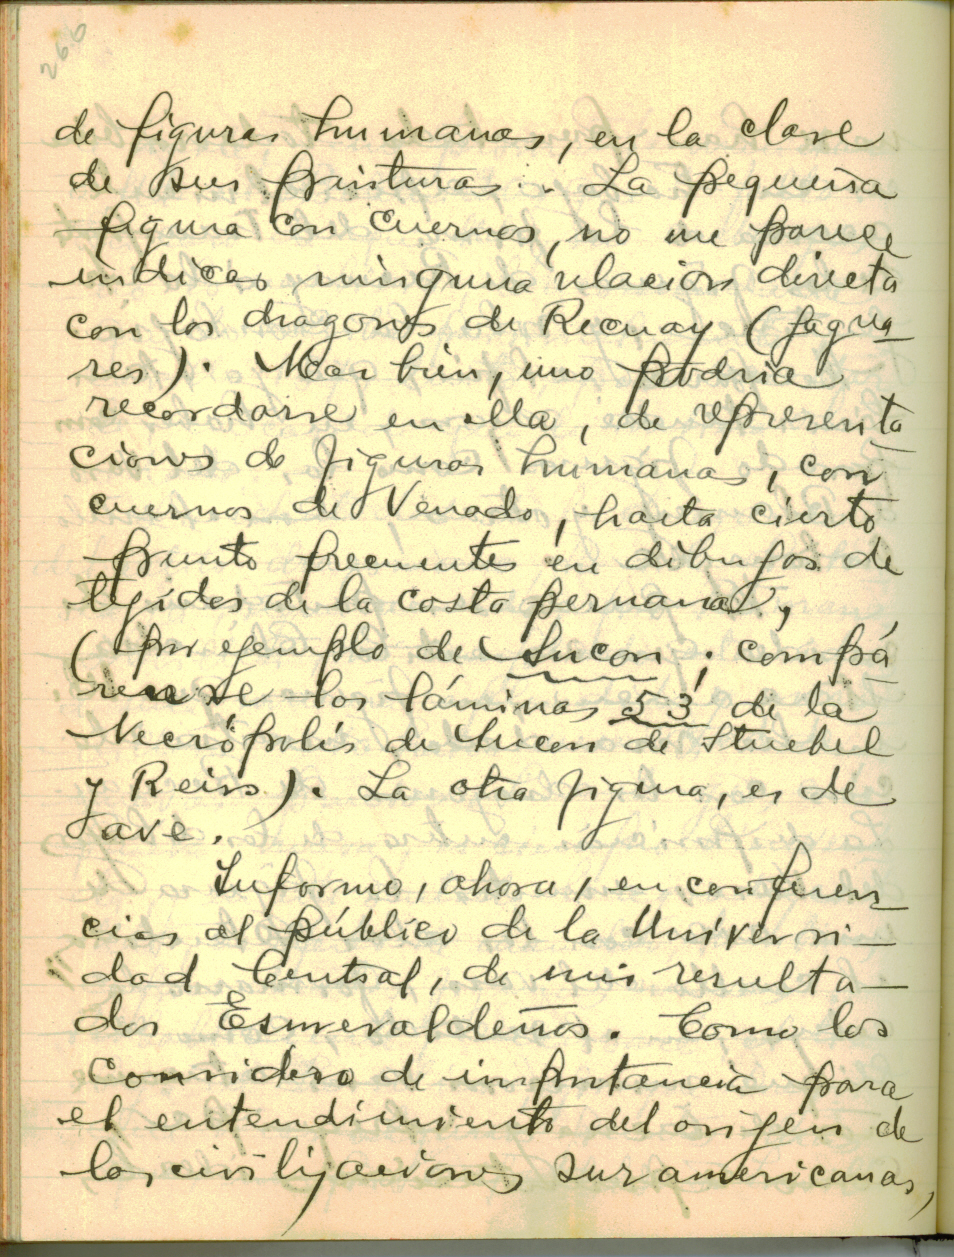 266
de figuras humanas, en la clase
de sus pinturas.. La pequeña
figura con cuernos, no me parece
indicar ninguna relacion directa
con los dragones de Recuay (jagua-
res). Mas bien, uno podria
recordarse en ella, de representa-
ciones de figuras humanas, con
cuernos de Venado, hasta cierto
punto frecuentes en dibujos de
tejidos de la costa peruana,
(por ejemplo de Ancon; compá-
rense los láminas 53 de la
Necrópolis de Ancon de Stuebel
y Reiss). La otra figura, es de
ave.
Informo, ahora, en conferen-
cias al público de la Universi-
dad Central, de mis resulta-
dos Esmeraldeños. Como los
considero de importancia para
el entendimiento del origen de
las civilizaciones suramericanas,